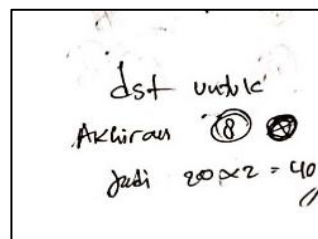 dst untuk
Akhiran 8
Jadi 20 x 2 = 40